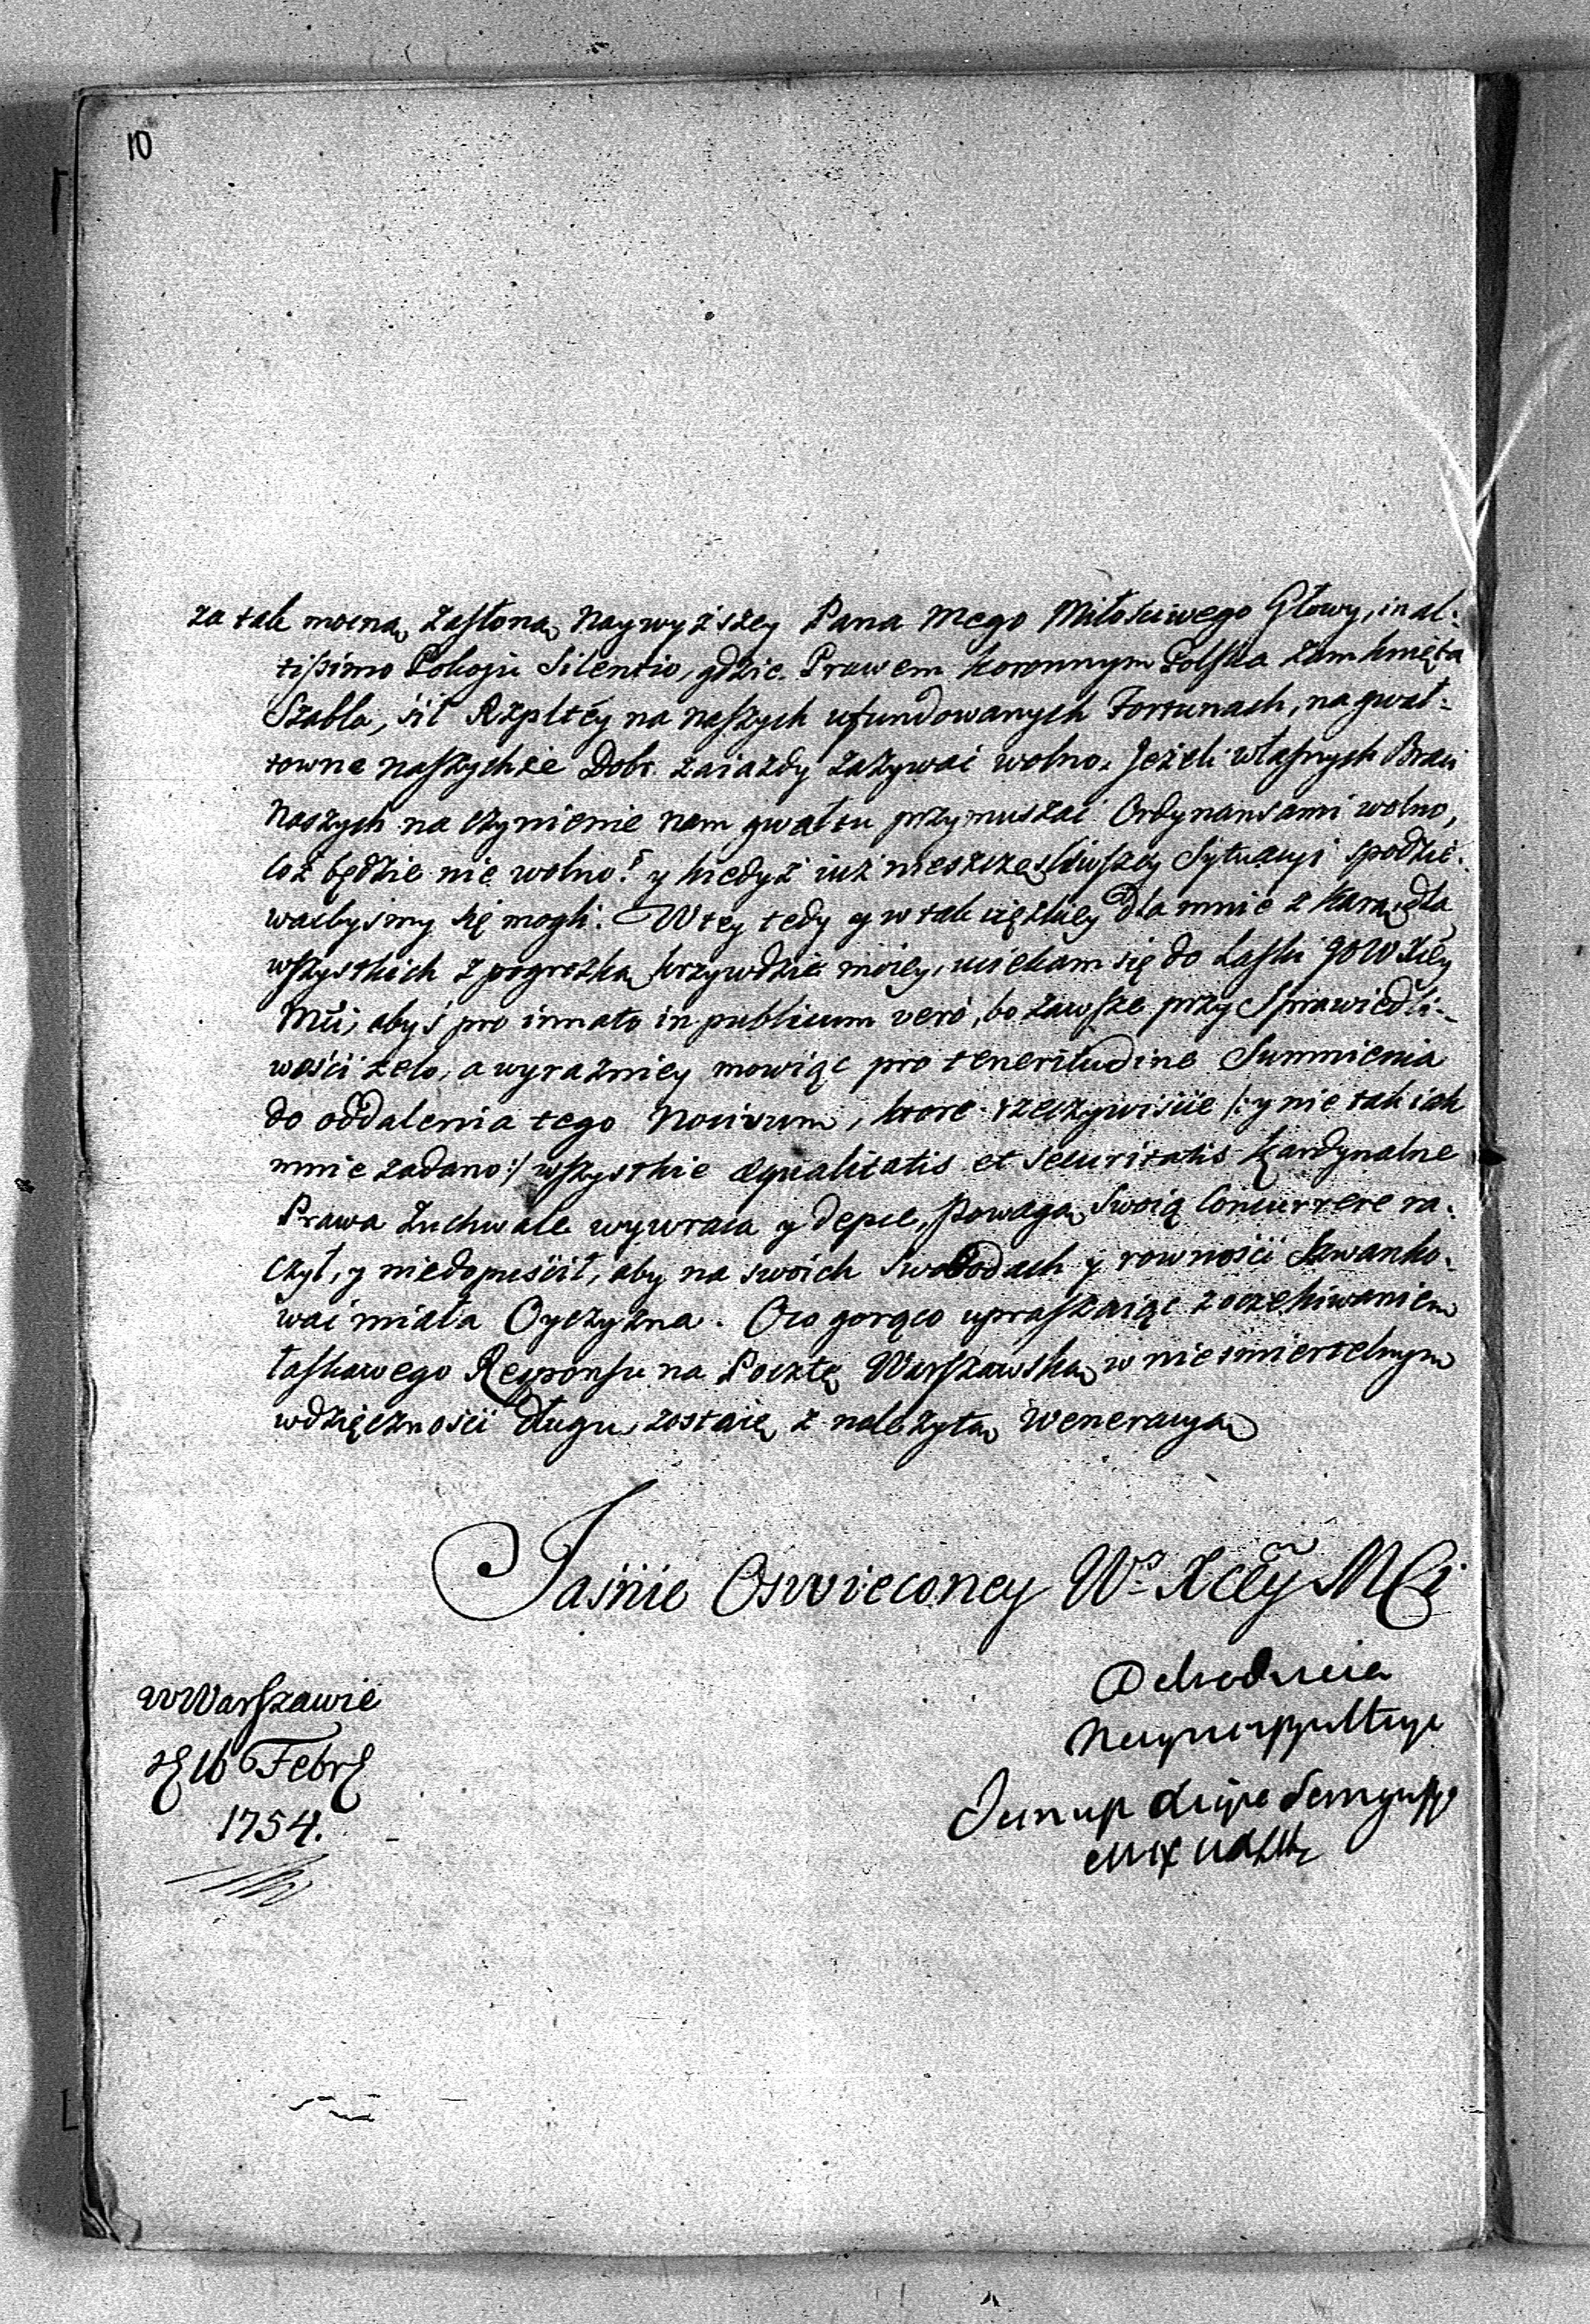 10
za tak mocną zasłoną Naywyższey Pana Mego Miłościwego Głowy, in al:
tißimo Pokoju Silentio, gdzie Prawem Koronnym Polska zamknięta
Szabla, sił Rzpltey na naszych ufundowanych Fortunach, na gwał:
towne naszychże Dobr zaiazdy zażywać wolno. Jeżeli własnych Braci
Naszych na czynienie nam gwałtu przymuszać Ordynansami wolno,
coż będzie nie wolno? y kiedyż iuż nieszczęśliwszey Sytuacyi spodzie:
wacbyśmy się mogli. W tey tedy y w tak cięzkiey Dla mnie z karą, dla
wszystkich z pogrożką krzywdzie moiey, uciekam się do Łaski JOWXcey
Mći, abyś pro innato in publicum vero, bo zawsze przy Sprawiedli:
wości zelo, a wyrazniey mowiąc pro teneritudine Summienia
do oddalenia tego Nocivum, ktore rzeczywiście /: y nie tak iak
mnie zadano :/ wszystkie æqualitatis et securitatis Kardynalne
Prawa zuchwale wywraca y depce, Powagą Swoią concurrere ra:
czył, y niedopuścił, aby na swoich Swobodach y rowności szwanko:
wać miała Oyczyzna. Oco gorąco upraszaiąc z oczekiwaniem
łaskawego Responsu na Pocztę Warszawską w nieśmiertelnym
wdzięczności długu zostaię z należytą Weneracyą
Jaśnie Oswieconey Ws Xcey MCi
w Warszawie
16 Febr
1754.